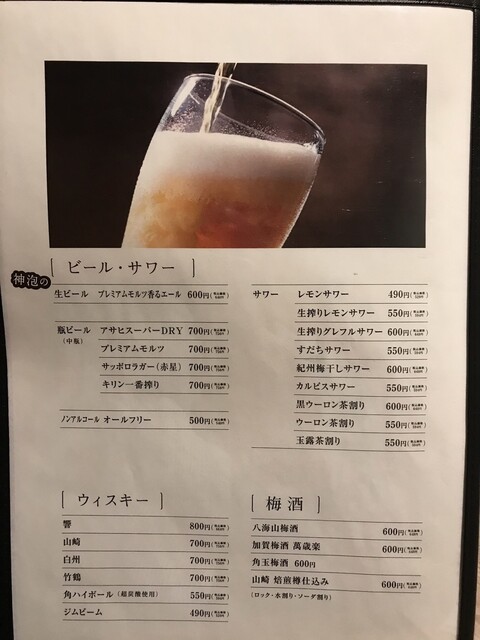 [ ビール・サワー ]
神泡の
生ビール プレミアムモルツ香るエール 600円
瓶ビール アサヒスーパーDRY 700円
(中瓶)
プレミアムモルツ 700円
サッポロラガー(赤星) 700円
キリン一番搾り 700円
ノンアルコール オールフリー 500円
サワー レモンサワー 490円
生搾りレモンサワー 550円
生搾りグレフルサワー 600円
すだちサワー 550円
紀州梅干しサワー 600円
カルピスサワー 550円
黒ウーロン茶割り 600円
ウーロン茶割り 550円
玉露茶割り 550円
[ ウィスキー ]
響 800円
山崎 700円
白州 700円
竹鶴 700円
角ハイボール(超炭酸使用) 550円
ジムビーム 490円
[ 梅酒 ]
八海山梅酒 600円
加賀梅酒 萬歳楽 600円
角玉梅酒 600円
山崎 焙煎樽仕込み 600円
(ロック・水割り・ソーダ割り)